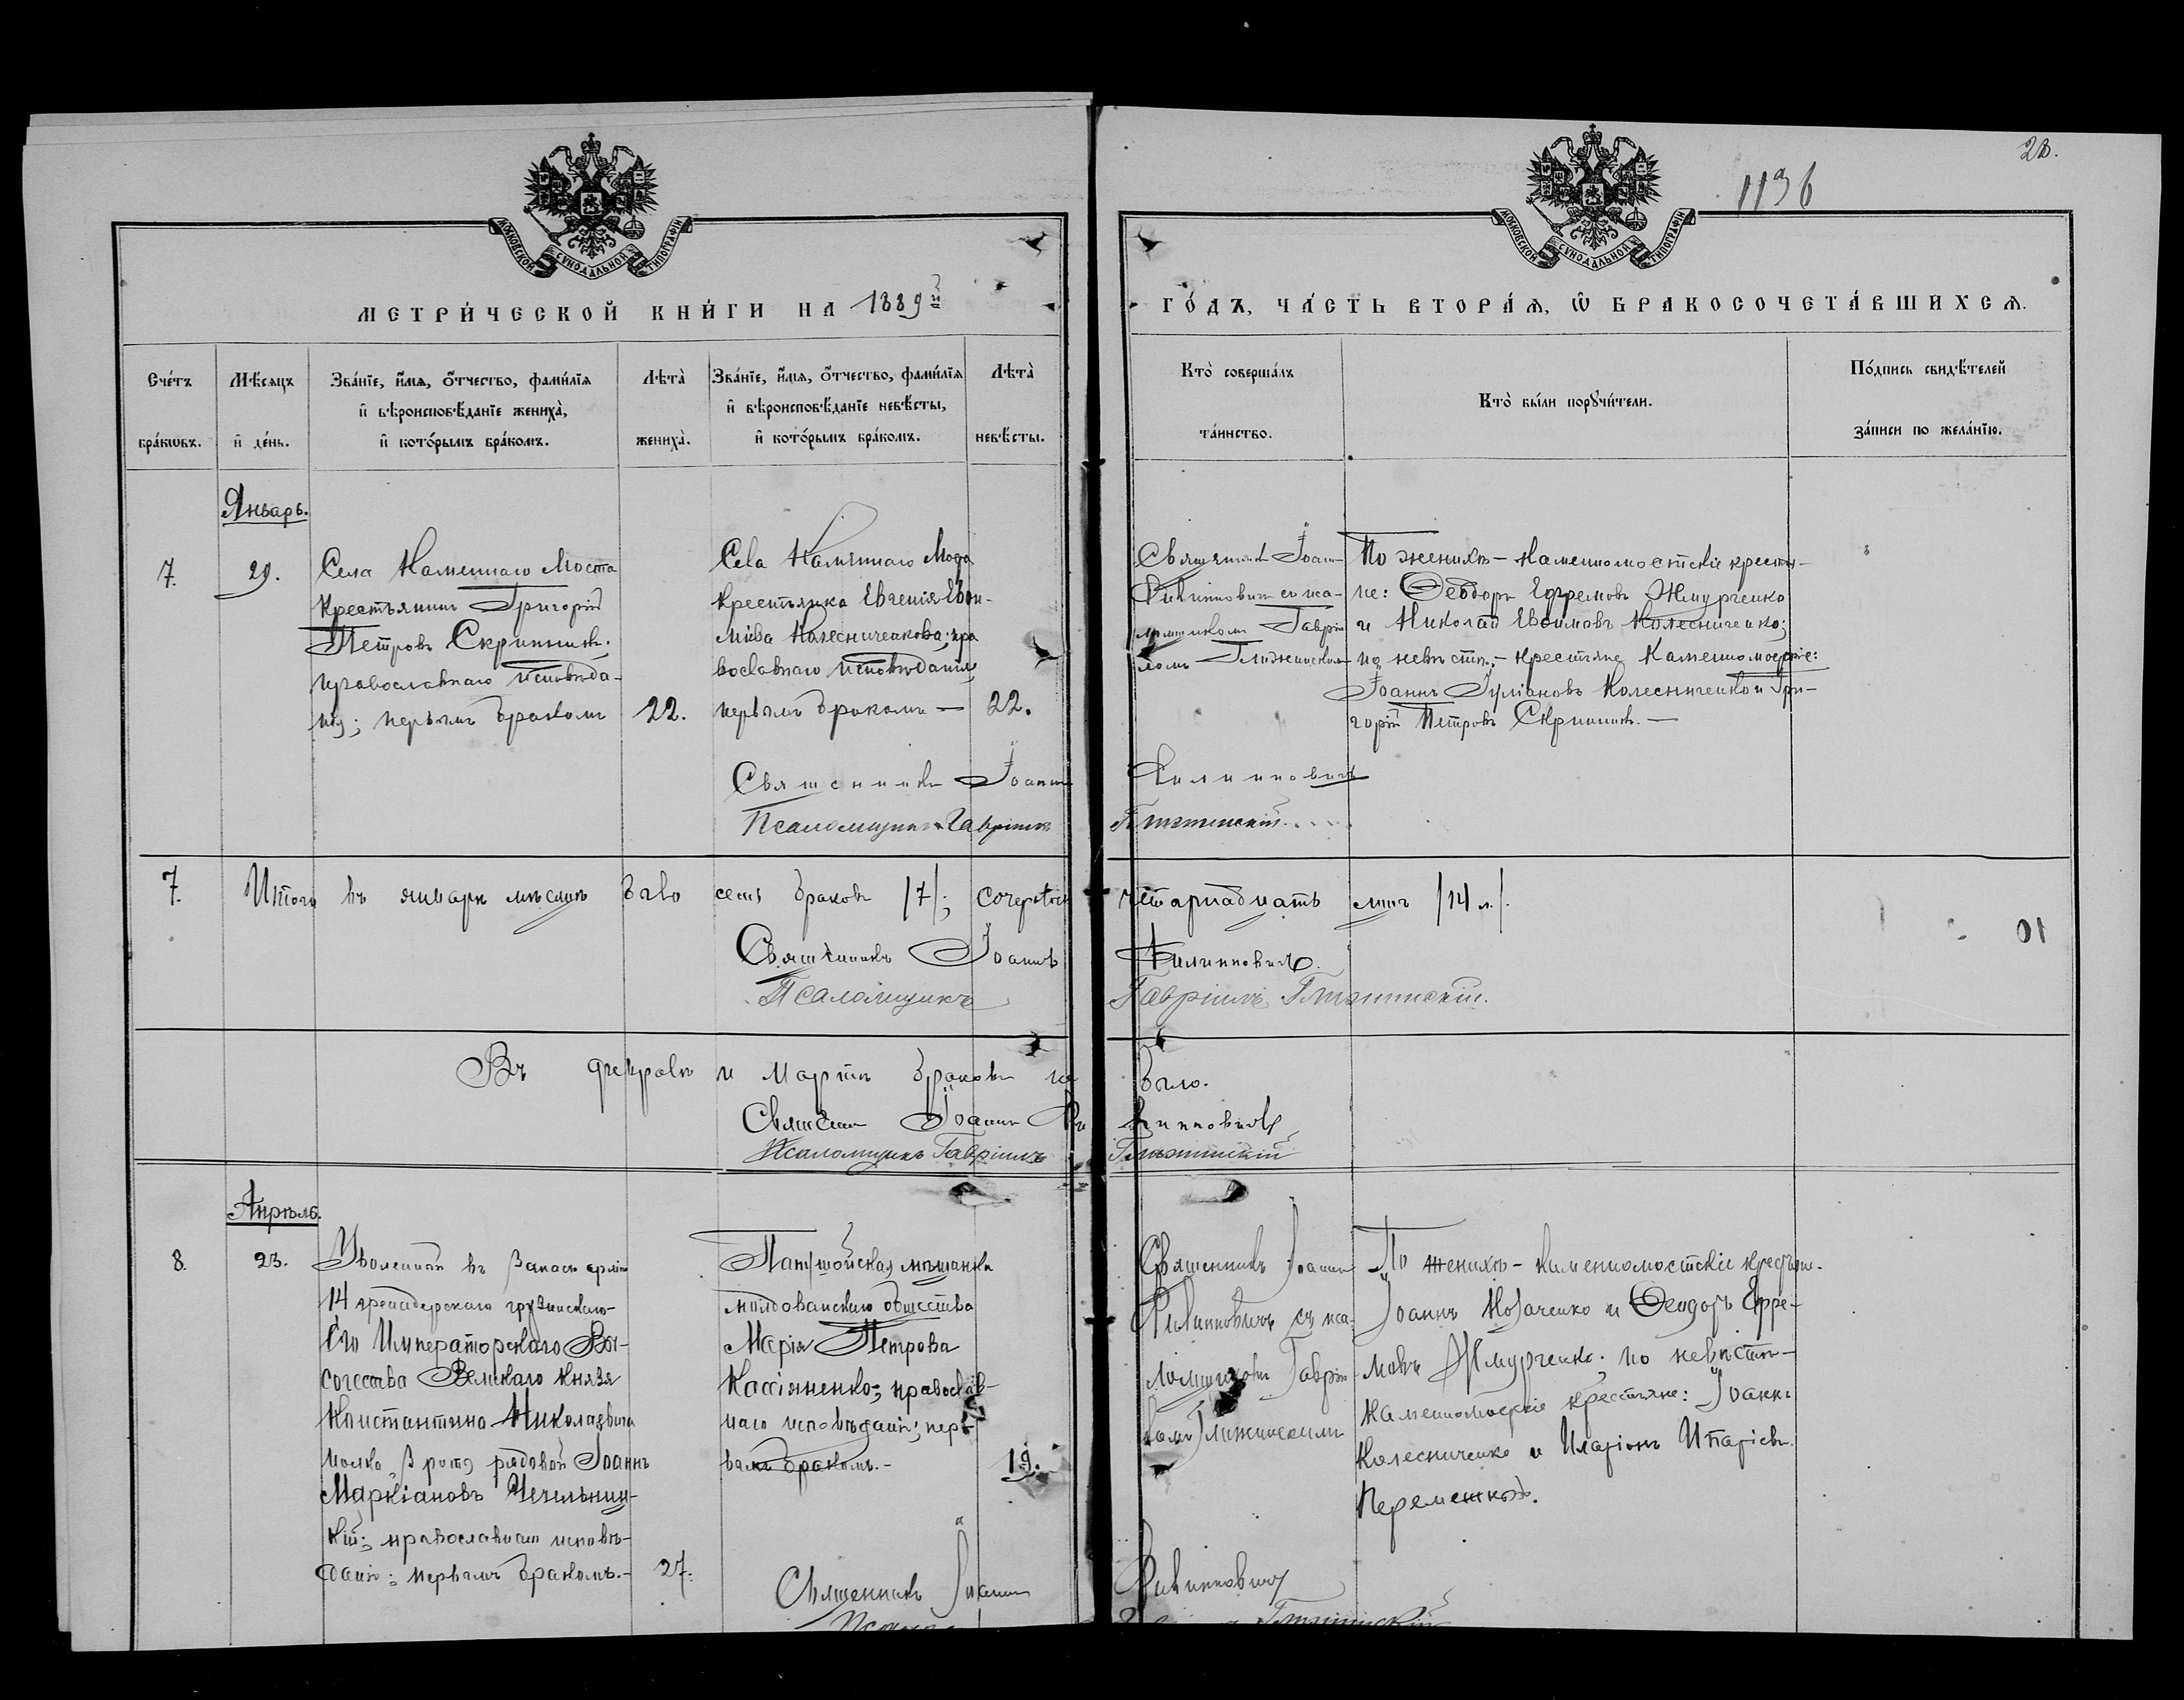 28.
1136
МОСКОВСКОЙ СУНОДАЛЬНОЙ ТИПОГРАФІИ
МОСКОВСКОЙ СУНОДАЛЬНОЙ ТИПОГРАФІИ
МЕТРИ́ЧЕСКОЙ КНИ́ГИ НА 1889й
ГО́ДЪ, ЧА́СТЬ ВТОРА́Я, Ѡ БРАКОСОЧЕТА́ВШИХСЯ.
Сче́тъ бра́кѡвъ.
Мѣ́сяцъ и де́нь.
Зва́нїе, и́мя, о́тчество, фами́лїя
и вѣроисповѣ́данїе жениха̀,
и кото́рымъ бра́комъ.
Лѣта̀ жениха̀.
Зва́нїе, и́мя, о́тчество, фами́лїя
и вѣроисповѣ́данїе невѣ́сты,
и кото́рымъ бра́комъ.
Лѣта̀ невѣ́сты.
Кто̀ соверша́лъ
та́инство.
Кто̀ бы́ли порꙋчи́тели.
По́дпись свидѣ́телей
за́писи по жела́нїю.
Январь.
7.
29.
Села Каменнаго Моста
Крестьянинъ Григорій
Петровъ Скрипникъ;
православнаго исповѣда-
нія; первымъ бракомъ
22.
Села Каменнаго Мода
крестьянка Евгенія Евфи-
міева Колесниченкова; пра
вославнаго исповѣданія,
первымъ бракомъ —
22.
Священникъ Іоаннъ
Филипповичъ съ пса-
ломщикомъ Гаврі
ломъ
По женихѣ - Каменномостскіе крестья-
не: Ѳеодоръ Ефремовъ Жмурченко
и Николай Евфимовъ Колесниченко;
по невѣстѣ, - крестьяне Каменномостскіе:
Іоаннъ Іуліановъ Колесниченко и Гри-
горій Петровъ Скрипникъ. —
Священникъ Іоаннъ Филипповичъ
Псаломщикъ Гавріилъ
7.
Итого въ январѣ мѣсяцѣ было семь браковъ /7/; четырнадцать лицъ /14 л./.
Священникъ Іоаннъ Филипповичъ.
Псаломщикъ Гавріилъ
Въ февралѣ и Мартѣ браковъ не было.
Священникъ Іоаннъ Филипповичъ
Псаломщикъ Гавріилъ
Апрѣль.
8.
23.
Уволенный въ запасъ арміи
14 гренадерскаго грузинскаго
Его Императорскаго Вы-
сочества Великаго Князя
Константина Николаевича
полка, 3 роты рядовой Іоаннъ
Маркіановъ Чечельниц-
кій; православнаго исповѣ-
данія; первымъ бракомъ. -
27.
мѣщанка
молдованскаго общества
Марія Петрова
Кассіяненко; православ-
наго исповѣданія; пер-
вымъ бракомъ. -
19.
Священникъ Іоаннъ
Филипповичъ съ пса-
ломщикомъ Гаврі
ломъ
По женихѣ - Каменномостскіе крестьяне.
Іоаннъ Козаченко и Ѳеодоръ Ефре-
мовъ Жмурченко; по невѣстѣ -
Каменномостскіе крестьяне: Іоаннъ
Колесниченко и Иларіонъ
Священникъ Іоаннъ Филипповичъ